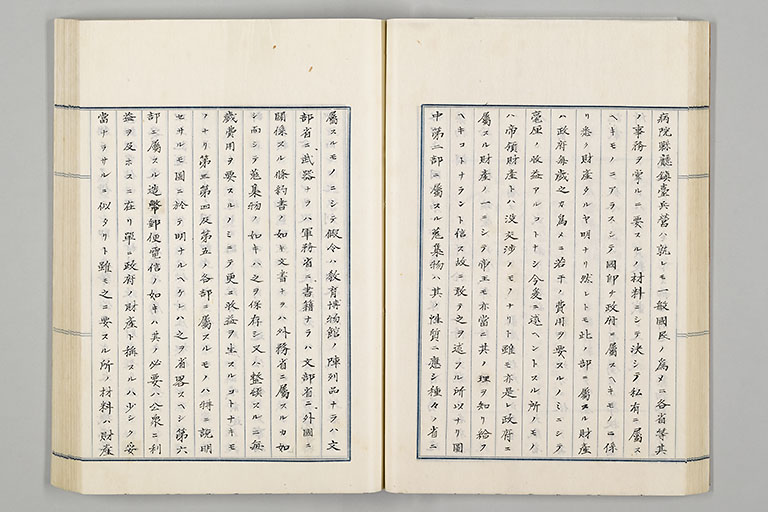 病院縣廳鎮臺兵營ハ孰レモ一般國民ノ爲メニ各省等其
ノ事務ヲ寧ルニ要スルノ材料ニシテ決シテ私有ニ屬ス
ヘキモノニアラスシテ國卽チ政府ニ屬スヘキモノニ係
リ悉ク財産タルヤ明ナリ然レトモ此ノ部ニ屬スル財産
ハ政府每歲之カ爲メニ若干ノ費用ヲ要スルノミニシテ
毫厘ノ收益アルコトナシ今爰ニ逑ヘントスル所ノモノ
ハ帝領財産トハ沒交涉ノモノナリト雖モ亦是レ政府ニ
屬スル財産ノ一ニシテ帝王モ亦當ニ其ノ理ヲ知リ給フ
ヘキコトナラント信ス故ニ玆ヲ之ヲ逑フル所以ナリ圖
中第二部ニ屬スル蒐集物ハ其ノ性質ニ應シ種々ノ省ニ
屬スルモノニシテ假令ハ敎育博物館ノ陳列品ナラハ文
部省ニ武器ナラハ軍務省ニ書籍ナラハ文部省ニ外國ニ
關係スル條約書ノ如キ文書ナラハ外務省ニ屬スルカ如
シ而シテ蒐集物ノ如キハ之ヲ保存シ又ハ整頓スルニ每
歲費用ヲ要スルノミニテ更ニ收益ヲ生スルコトナキモ
ノナリ第三第四及第五ノ各部ニ屬スルモノハ特ニ說明
セサルモ圖ニ於テ明ナルヘケレハ之ヲ省畧スヘシ第六
部ニ屬スル造幣郵便電信ノ如キハ其ノ必要ハ公衆ニ利
益ヲ及ホスニ在リ單ニ政府ノ財産ト稱スルハ少シク妥
當ナラサルニ似タリト雖モ之ニ要スル所ノ材料ハ財産